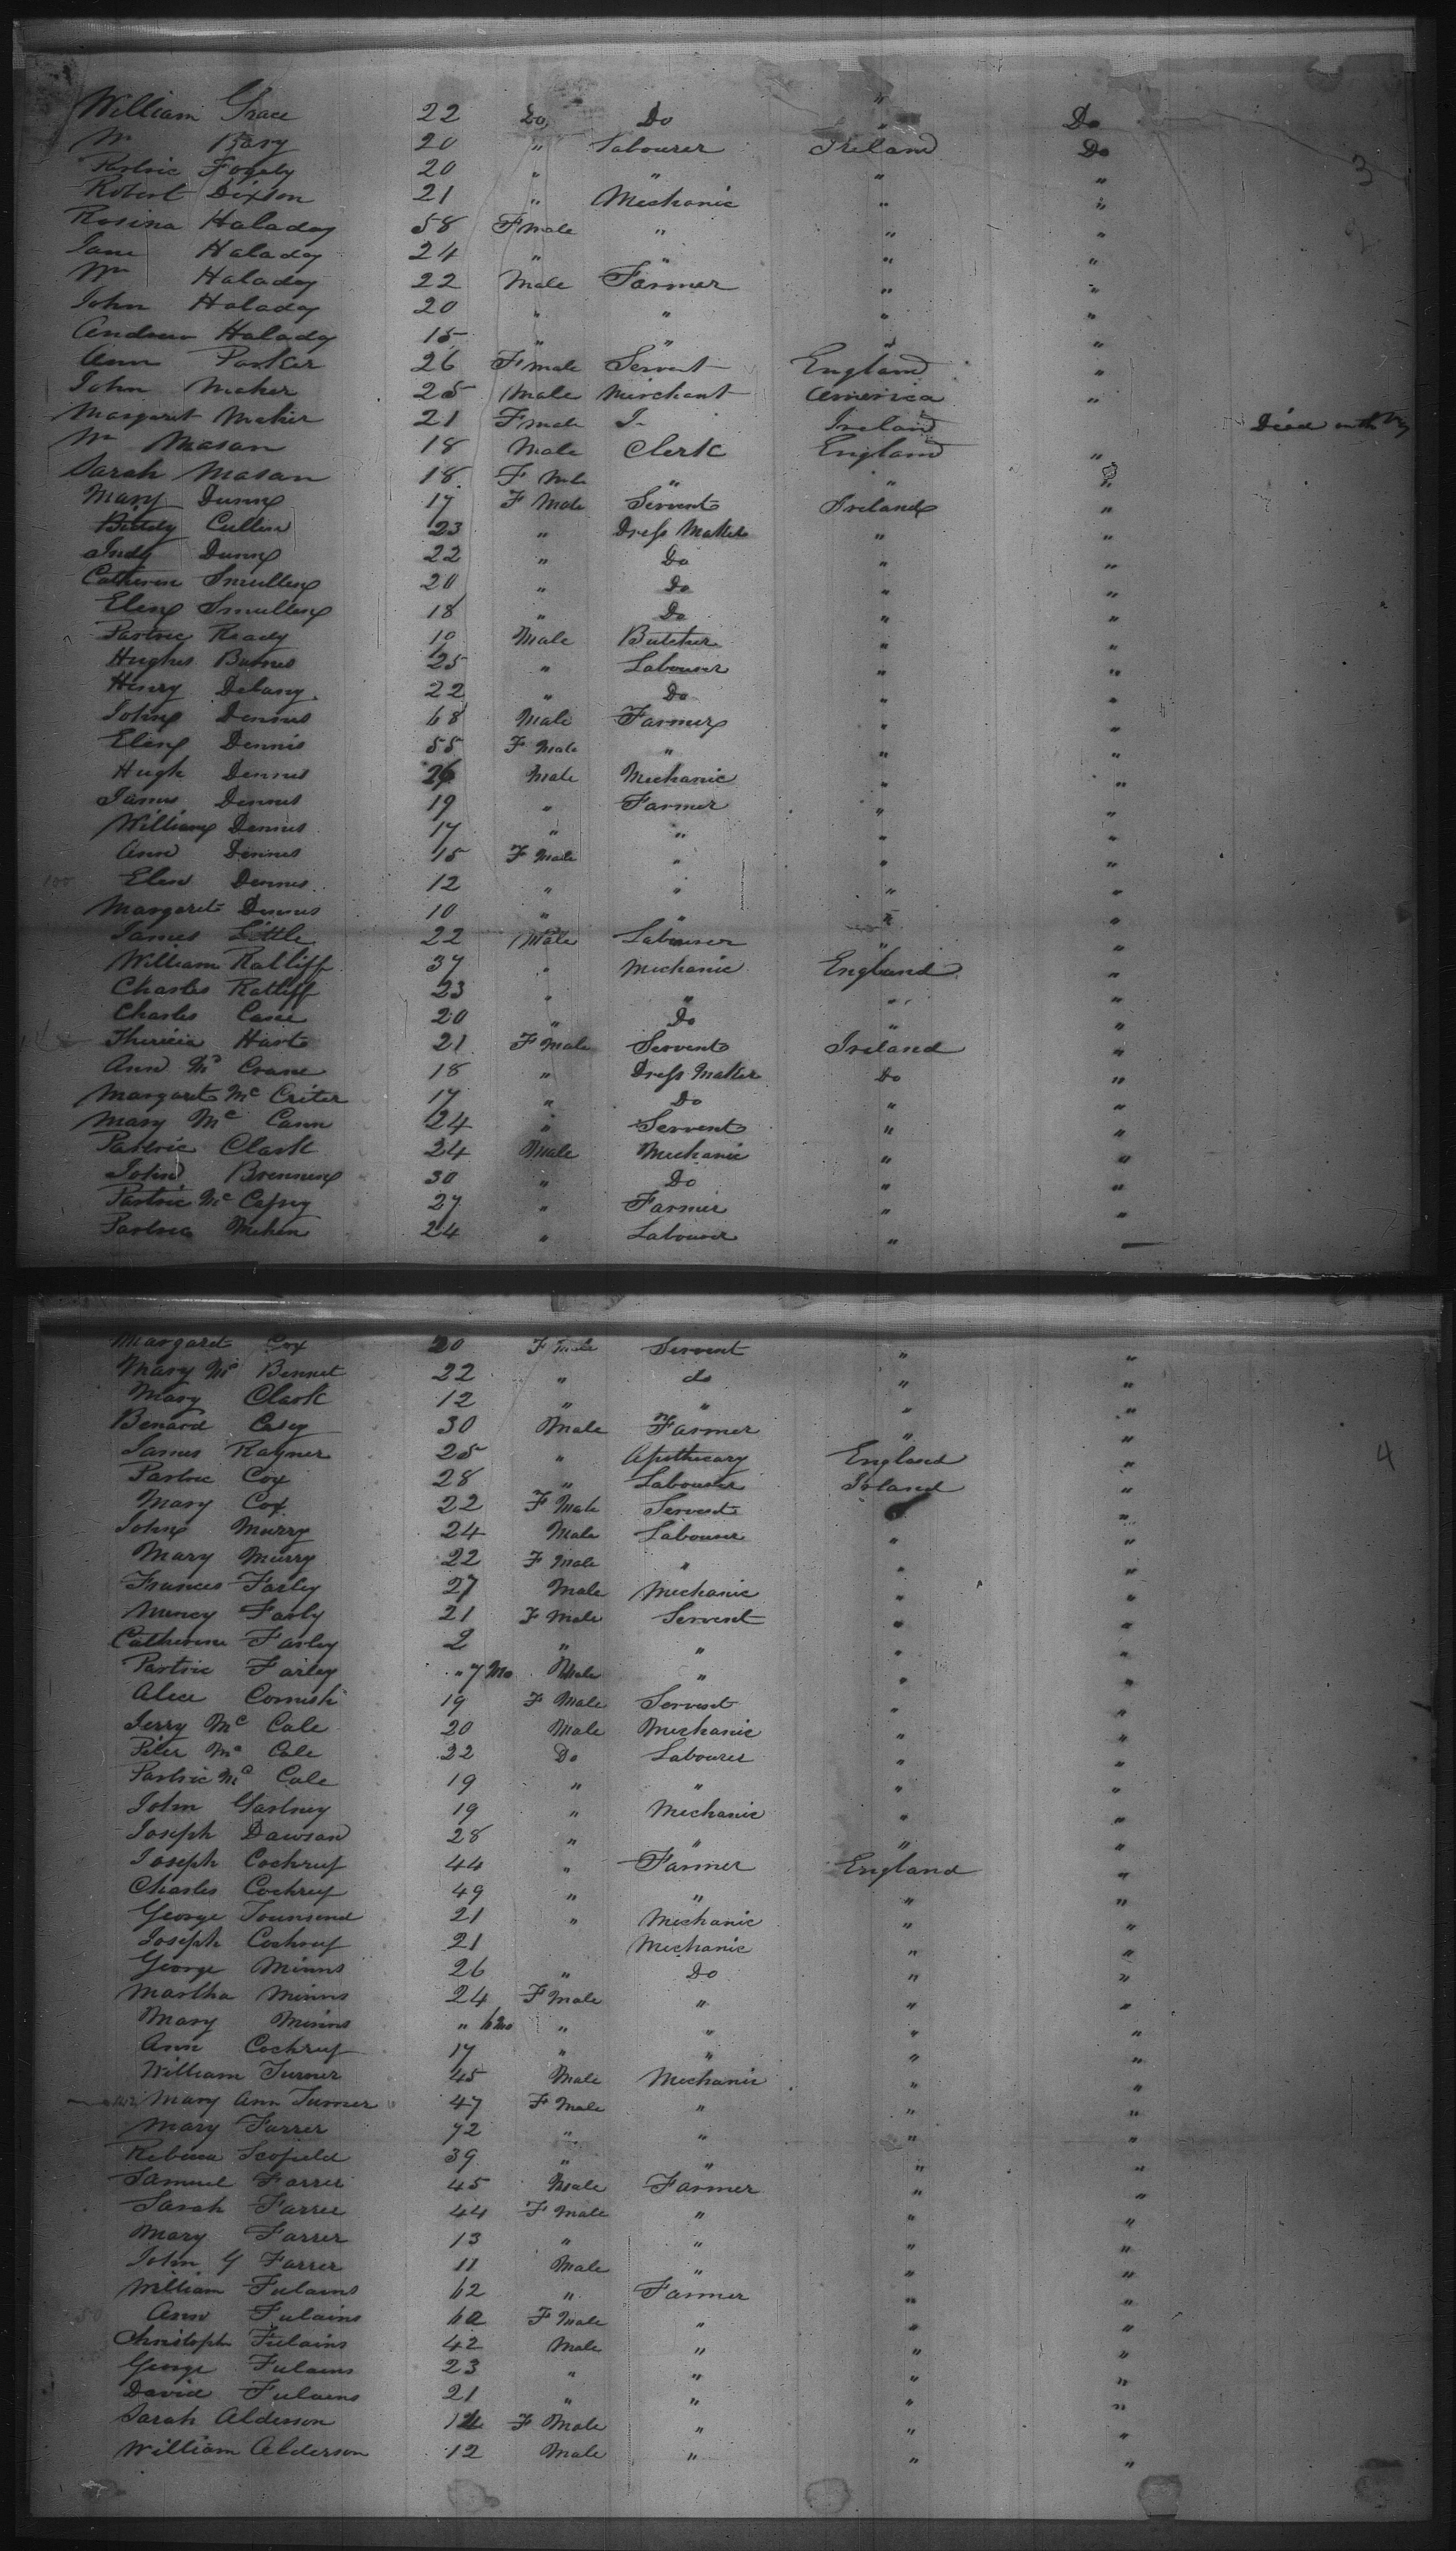 William Grace 22 Do Do " Do
Wm Bary 20 " Labourer Ireland Do
Partric Fogaty 20 " " " " 3
Robert Dixson 21 " Mechanic " "
Rosina Haladay 58 F male " " "
Jane Haladay 24 " " " "
Wm Haladay 22 Male Farmer " "
John Haladay 20 " " " "
Andrew Halady 15 " " " "
Ann Parker 26 F male Servent England "
John Maher 25 Male Merchant America "
Margaret Maher 21 F male Ireland Died on the
Wm Masan 18 Male Clerk England "
Sarah Masan 18 F Male " " "
Mary Dunn 17 F Male Servent Ireland "
Cullen 23 " Dress Maker " "
Judy Dunn 22 " Do " "
Catheren Smullen 20 " Do " "
Elen Smullen 18 " Do " "
Partric Ready 10 Male Butcher " "
Hughes Burnes 25 " Labourer " "
Henry Delany 22 " Do " "
John Dennis 68 Male Farmer " "
Elen Dennis 55 F Male " " "
Hugh Dennis 26 Male Mechanic " "
James Dennis 19 " Farmer " "
William Dennis 17 " " " "
Ann Dennis 15 F Male " " "
100 Elen Dennis 12 " " " "
Margaret Dennis 10 " " " "
James Little 22 Male Labourer " "
William Ratliff 37 " Mechanic England "
Charles Ratliff 23 " " " "
Charles Case 20 " Do " "
Thericia Hart 21 F Male Servent Ireland "
Ann Mc Crane 18 " Dress Maker Do "
Margaret Mc Criter 17 " Do " "
Mary Mc Cann 24 " Servent " "
Partric Clark 24 Male Mechanic " "
John Brennen 30 " Do " "
Partric Mc Cafrey 27 " Farmer " "
Partric Mehen 24 " Labourer "
Margaret Cox 20 F Male Servent " "
Mary Mc Bennet 22 " do " "
Mary Clark 12 " " " "
Benard Casey 30 Male Farmer " "
James Rayner 25 " Apothecary England " 4
Partric Cox 28 " Labourer Irland "
Mary Cox 22 F Male Servent "
John Murry 24 Male Labourer " "
Mary Murry 22 F Male " " "
Frances Farley 27 Male Mechanic " "
Nancy Farly 21 F Male Servent " "
Catheren Farley 2 " " " "
Partric Farley " 7 Mo Male " " "
Alece Cornish 19 F Male Servent " "
Jerry Mc Cale 20 Male Mechanic " "
Peter Mc Cale 22 Do Labourer " "
Partric Mc Cale 19 " " " "
John Gartney 19 " Mechanic " "
Joseph Dawsan 28 " " " "
Joseph Cockruf 44 " Farmer England "
Charles Cockruf 49 " " " "
George Tounsend 21 " Mechanic " "
Joseph Cockruf 21 Mechanic " "
George Minns 26 " Do " "
Martha Minns 24 F Male " " "
Mary Minns " 6 Mo " " " "
Ann Cockruf 17 " " " "
William Turner 45 Male Mechanic " "
Mary Ann Turner 47 F Male " " "
Mary Farrer 72 " " " "
Rebecca Scofield 39 " " " "
Samuel Farrer 45 Male Farmer " "
Sarah Farrer 44 F Male " " "
Mary Farrer 13 " " " "
John G Farrer 11 Male " " "
William Fulains 62 " Farmer " "
50 Ann Fulains 60 F Male " " "
Christoph Fulains 42 Male " " "
George Fulains 23 " " " "
David Fulains 21 " " " "
Sarah Aldersson F Male " " "
William Alderson 12 Male " " "